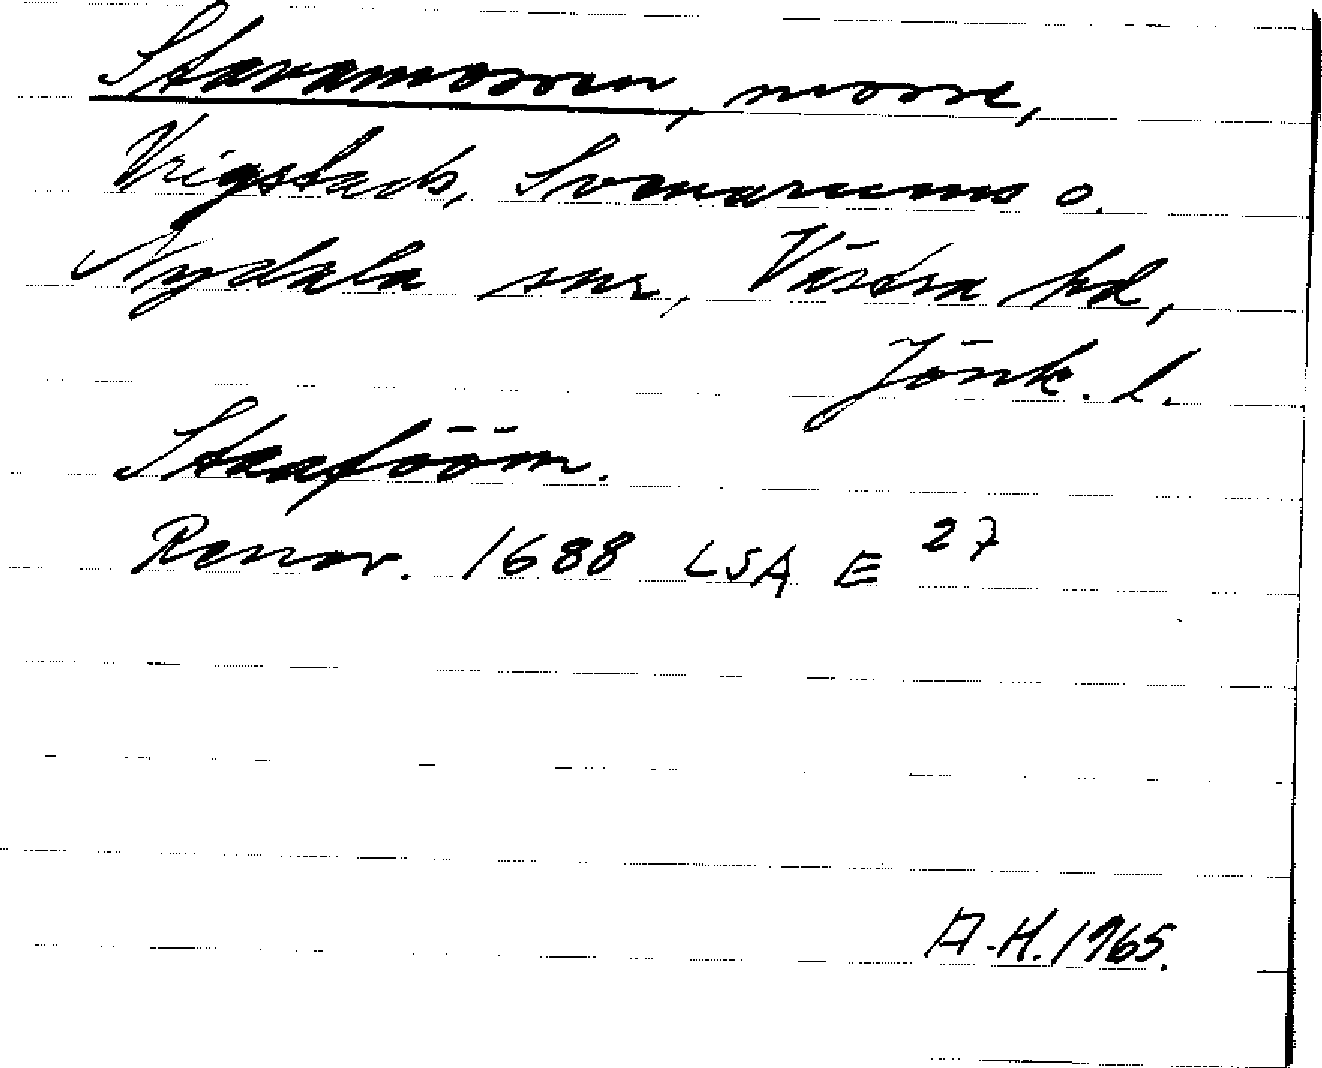 Stavamossen, mosse,
Vrigstads, Svenarums o.
Nydala snr, Västra hd,
Jönk. l.
Staafööm.
Renov. 1688 LSA E 27
A-H. 1965.